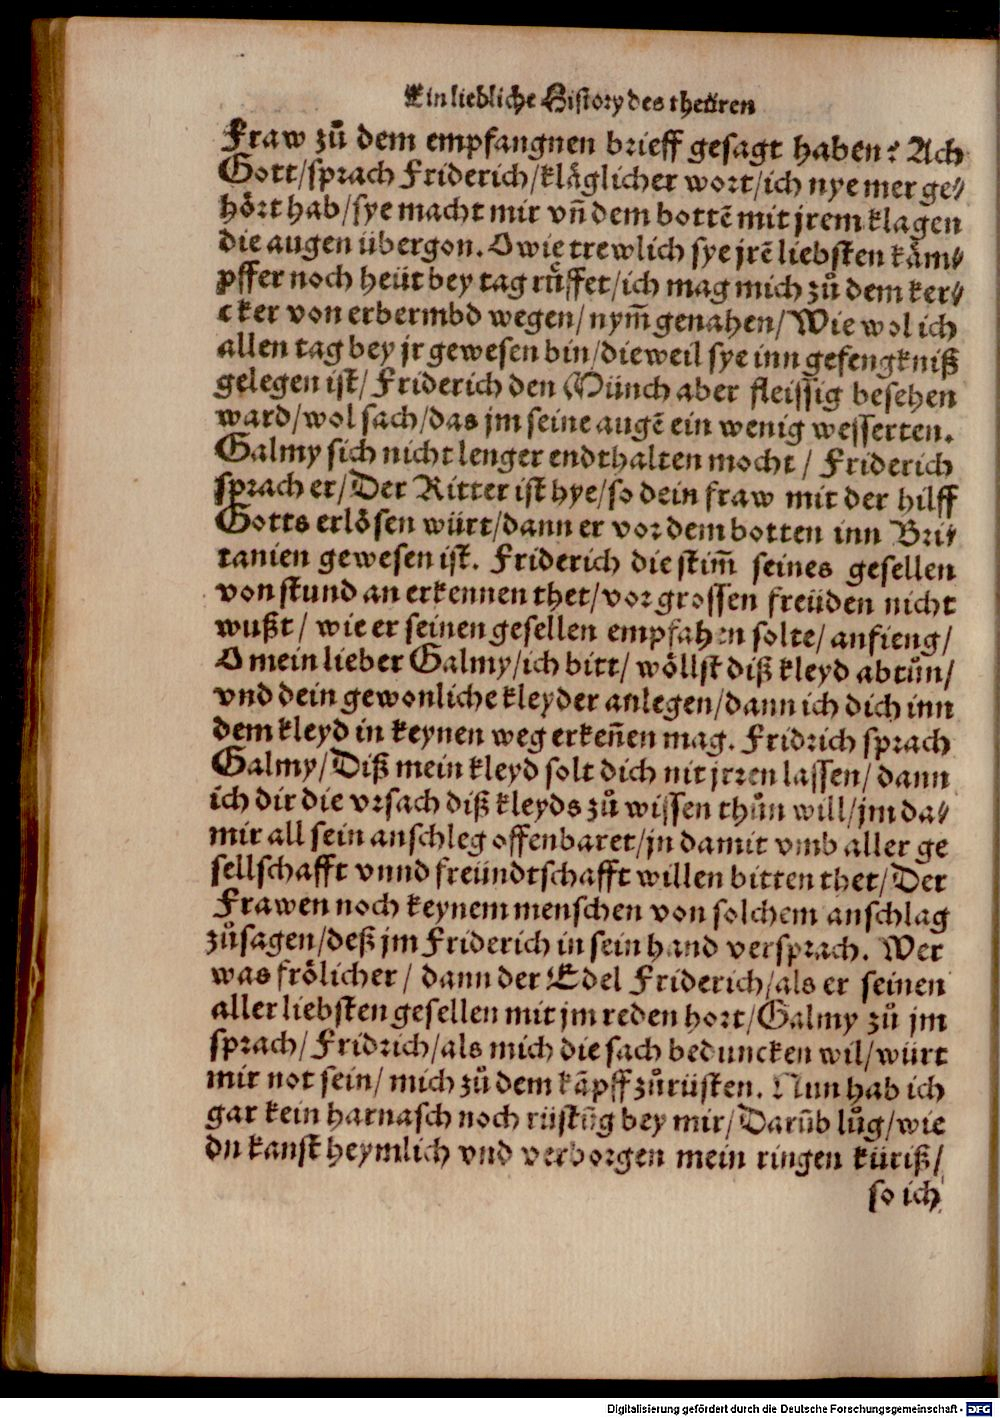 Ein liebliche History des theüren
Fraw zů dem empfangnen brieff gesagt haben? Ach
Gott/sprach Friderich/kläglicher wort/ich nye mer ge/
hört hab/sye macht mir vñ dem bottẽ mit jrem klagen
die augen übergon. O wie trewlich sye jrẽ liebsten käm/
pffer noch heüt bey tag rüffet/ich mag mich zů dem ker/
cker von erbermbd wegen/nym̃ genahen/Wie wol ich
allen tag bey jr gewesen bin/dieweil sye inn gefengkniß
gelegen ist/Friderich den Münch aber fleissig besehen
ward/wol sach/das jm seine augẽ ein wenig wesserten.
Galmy sich nicht lenger endthalten mocht/Friderich
sprach er/Der Ritter ist hye/so dein fraw mit der hilff
Gotts erlösen würt/dann er vor dem botten inn Bri/
tanien gewesen ist. Friderich die stim̃ seines gesellen
von stund an erkennen thet/vor grossen freüden nicht
wußt/wie er seinen gesellen empfahen solte/anfieng/
O mein lieber Galmy/ich bitt/wöllst diß kleyd abtůn/
vnd dein gewonliche kleyder anlegen/dann ich dich inn
dem kleyd in keynen weg erkeñen mag. Fridrich sprach
Galmy/Diß mein kleyd solt dich nit jrren lassen/dann
ich dir die vrsach diß kleyds zů wissen thůn will/jm da/
mit all sein anschleg offenbaret/jn damit vmb aller ge
sellschafft vnnd freündtschafft willen bitten thet/Der
Frawen noch keynem menschen von solchem anschlag
zůsagen/deß jm Friderich in sein hand versprach. Wer
was frölicher/dann der Edel Friderich/als er seinen
aller liebsten gesellen mit jm reden hort/Galmy zů jm
sprach/Fridrich/als mich die sach beduncken wil/würt
mir not sein/mich zů dem kãpff zůrüsten. Nun hab ich
gar kein harnasch noch rüstũg bey mir/Darũb lůg/wie
du kanst heymlich vnd verborgen mein ringen küriß/
so ich
Digitalisierung gefördert durch die Deutsche Forschungsgemeinschaft - DFG